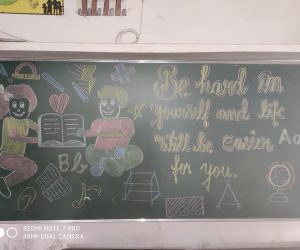 Be hard on
yourself and life
will be easier
for you.
Aa
Bb
REDMI NOTE 7 PRO
48MP DUAL CAMERA